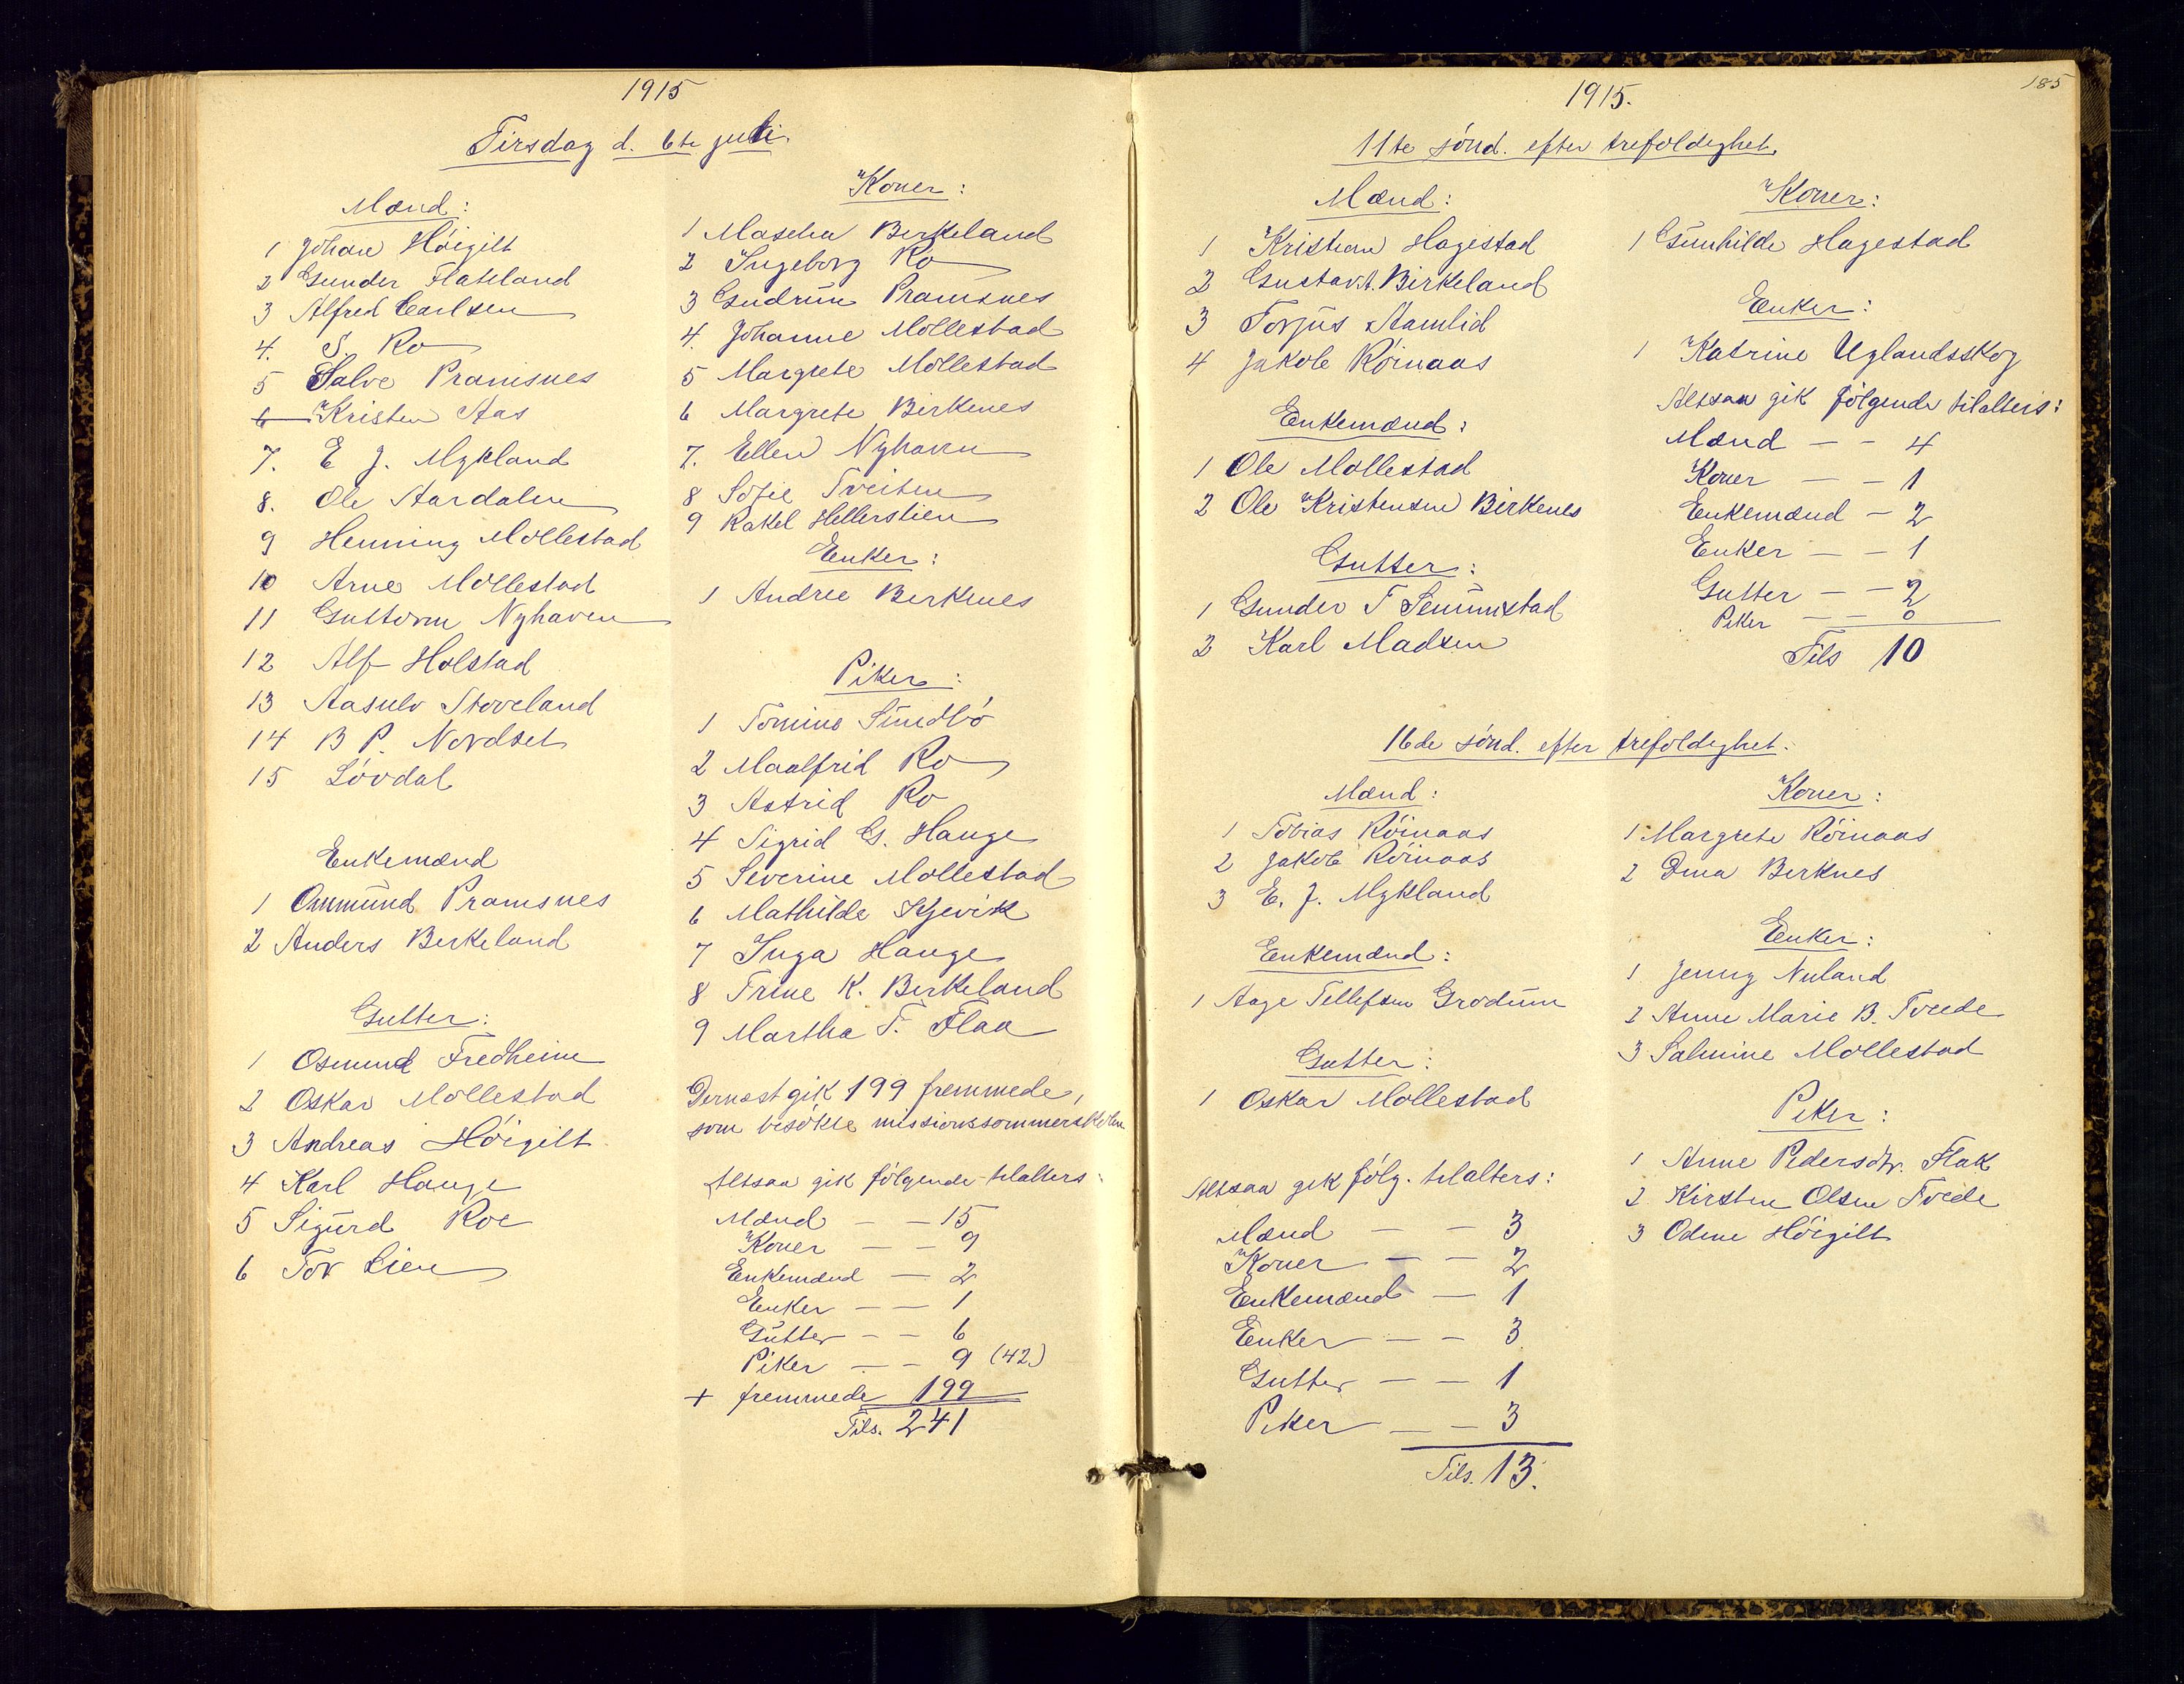 1915
Tirsdag d. 6te juli
Mænd:
1 Johan Høigilt
2 Gunder Flakeland
3 Alfred Carlsen
4. S. Ro
5 Salve Pramsnes
6 Kristen Aas
7. E J. Mykland
8. Ole Aardalen
9 Henning Mollestad
10 Arne Mollestad
11 Guttorm Nyhaven
12 Alf Holstad
13 Aasulv Stoveland
14 B P. Nordset
15 Løvdal
Enkemænd
1 Ommund Pramsnes
2 Anders Birkeland
Gutter:
1 Osmund Fredheim
2 Oskar Mollestad
3 Andreas Høigilt
4 Karl Hauge
5 Sigurd Roe
6 Tor Lien
Koner:
1 Mascha Birkeland
2 Ingeborg Ro
3 Gudrun Pramsnes
4. Johanne Mollestad
5 Margrete Mollestad
6 Margrete Birkenes
7. Ellen Nyhaven
8 Sofie Tveiten
9 Rakel Hellerslien
Enker:
1 Andree Birkenes
Piker:
1 Tomine Sundbø
2 Maalfrid Ro
3 Astrid Ro
4 Sigrid G. Hauge
5 Severine Mollestad
6 Mathilde Kjevik
7 Inga Hauge
8 Trine K. Birkeland
9 Martha T. Flaa
Dernæst gik 199 fremmede,
som besøkte missionssommerskolen
Altsaa gik følgende tilalters:
Mænd — — 15
Koner — — 9
Enkemænd — 2
Enker — — 1
Gutter — — 6
Piker — — 9 (42.)
+ fremmede 199
Tils. 241
185
1915.
11te sønd. efter trefoldighet.
Mænd:
1 Kristian Hagestad
2 Gustav. A. Birkeland
3 Torjus Aamlid
4 Jakob Røinaas
Enkemænd:
1 Ole Mollestad
2 Ole Kristensen Birkenes
Gutter:
1 Gunder T Senumstad
2 Karl Madsen
Koner:
1 Gunhilde Hagestad
Enker:
1 Katrine Uglandsskog
Altsaa gik følgende tilalters:
Mænd — — 4
Koner — — 1
Enkemænd — 2
Enker — — 1
Gutter — — 2
Piker — — 0
Tils 10
16de sønd. efter trefoldighet.
Mænd:
1 Tobias Røinaas
2 Jakob Røinaas
3 E. J. Mykland
Enkemænd:
1 Aage Tellefsen Grødum
Gutter:
1 Oskar Mollestad
Altsaa gik følg. tilalters:
Mænd — — 3
Koner — — 2
Enkemænd — 1
Enker — — 3
Gutter — — 1
Piker — — 3
Tils. 13.
Koner:
1 Margrete Røinaas
2 Dina Birknes
Enker:
1 Jenny Nuland
2 Anne Marie B. Tveede
3 Salmine Mollestad
Piker:
1 Anne Pedersdtr. Flak
2 Kirsten Olsen Tvede
3 Odine Høigilt